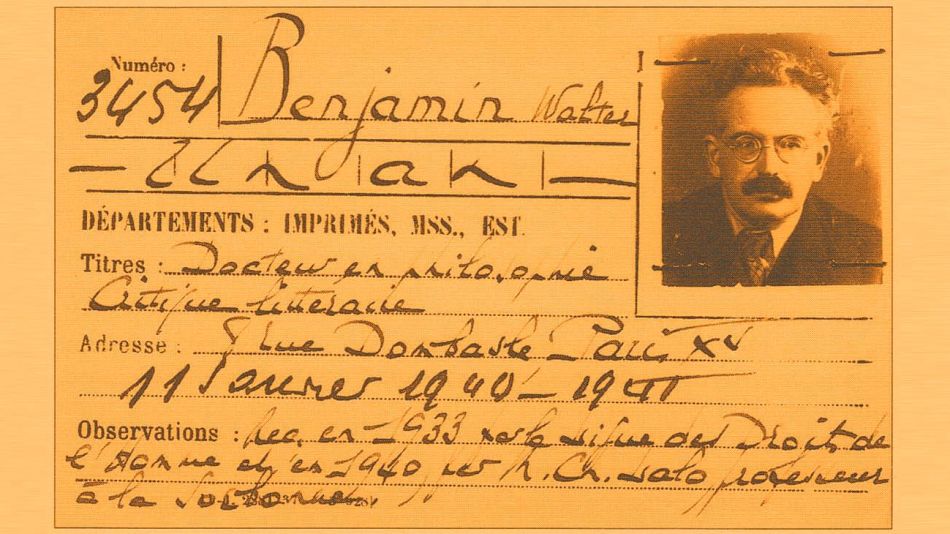 Numéro :
3454 Benjamin Walter
— Un an —
DÉPARTEMENTS : IMPRIMÉS, MSS., EST.
Titres : Docteur en philosophie
Critique littéraire
Adresse : rue Dombasle Paris XV
11 Janvier 1940 - 1941
Observations : Rec. en 1933 par la Ligue des Droits de
l'Homme et en 1940 par M. Ch. Lalo professeur
à la Sorbonne